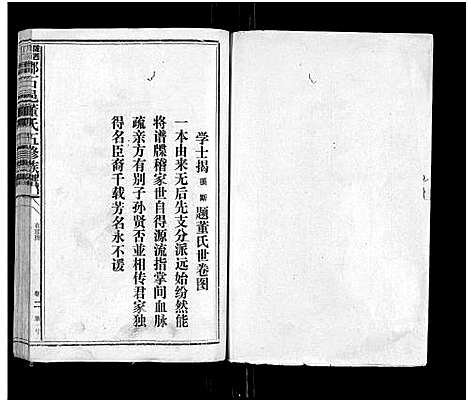 学士揭傒斯题董氏世卷图
一本由来无后先支分派远始纷然能
将谱牒稽家世自得源流指掌间血脉
疏亲方有别子孙贤否並相传君家独
得名臣裔千载芳名永不谖
董氏五修族谱
卷二